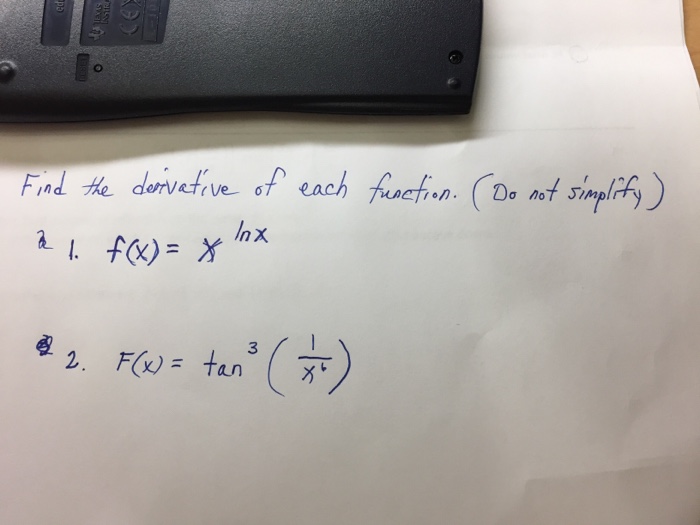 Find the derivative of each function. (Do not simplify)
1. f(x) = x^ln x
2. F(x) = tan^3 (1/x^6)